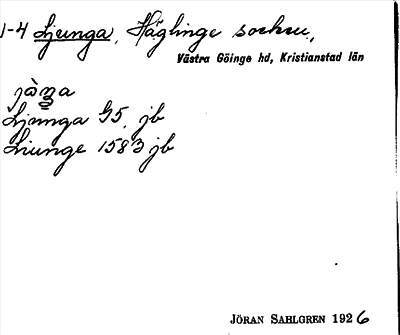 1-4 Ljunga, Häglinge socken,
Västra Göinge hd, Kristianstad län
jàŋa
Ljunga 45, jb
Liunge 1583 jb
JÖRAN SAHLGREN 1926